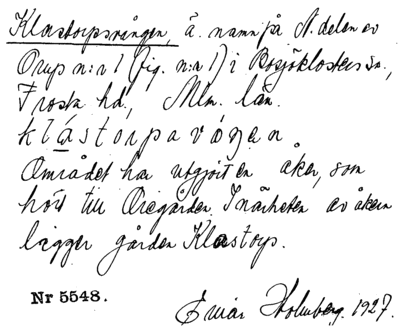 Klastorpsvången, ä. namn på N. delen av
Orup n:r 1 (fig. n:r 1) i Bosjöklosters sn.,
Frosta hd, Mlm. län.
klástorpavóŋen
Området har utgjort en åker, som
hört till Oregården. I närheten av åkern
ligger gården Klastorp.
Nr 5548.
Einar Holmberg. 1927.